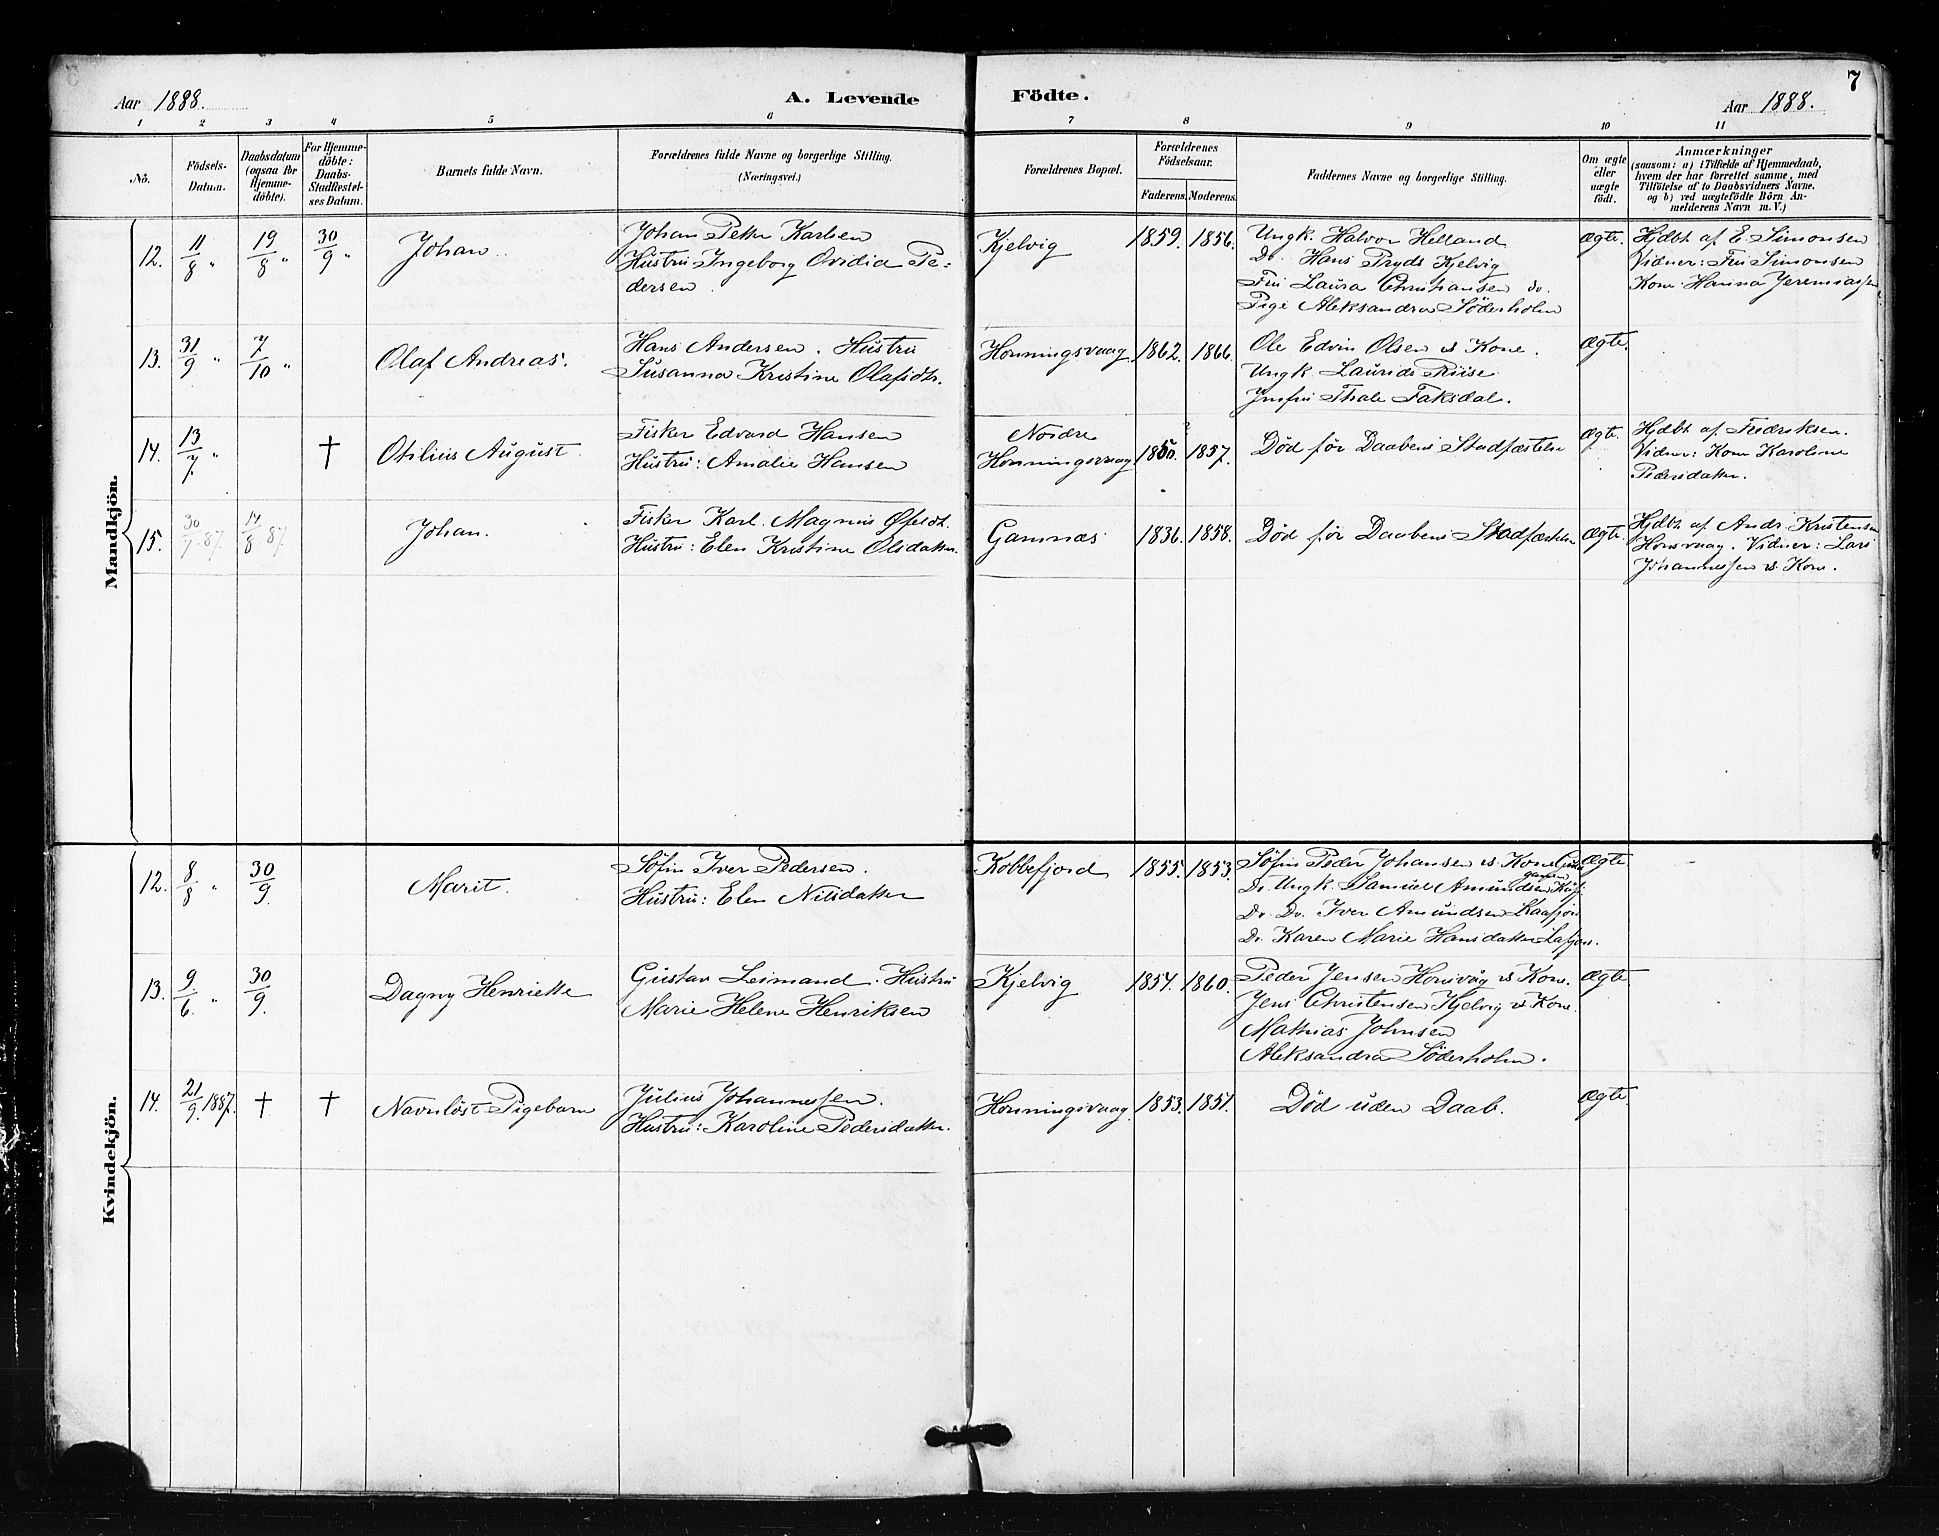 7
Aar 1888.
A. Levende Födte.
Aar 1888.
1 2 3 4 5 6 7 8 9 10 11
No.
Födsels-Datum.
Daabsdatum (ogsaa for Hjemmedöbte).
For Hjemmedöbte: Daabs-Stadfæstelses Datum.
Barnets fulde Navn.
Forældrenes fulde Navne og borgerlige Stilling.
(Næringsvei.)
Forældrenes Bopæl.
Forældrenes Födselsaar.
Faderens. Moderens.
Faddernes Navne og borgerlige Stilling.
Om ægte eller uægte födt.
Anmærkninger
(saasom: a) i Tilfælde af Hjemmedaab,
hvem der har forrettet samme, med
Tilföielse af to Daabsvidners Navne.
og b) ved uægtefödte Börn An-
melderens Navn m.V.)
Mandkjön.
12. 11/8 " 19/8 " 30/9 " Johan
Johan Petter Karlsen
Hustru Ingeborg Ovidia Pe-
dersen.
Kjelvig 1859. 1856.
Ungk. Halvor Helland
Do. Hans Pryds Kjelvig
Fru Laura Christiansen do.
Pige Aleksandra Söderholm
Ægte.
Hjdbt af E. Simonsen
Vidner: Fru Simonsen
Kone Hanna Jeremiassen
13. 31/9 " 7/10 " Olaf Andreas.
Hans Andersen. Hustru
Susanna Kristine Olafsdtr.
Honningsvaag. 1862. 1866.
Ole Edvin Olsen & Kone.
Ungk. Laurids Riise
Jmfru Thale Faksdal.
Ægte.
14. 13/7 " † Otilius August.
Fisker Edvard Hansen
Hustru: Amalie Hansen
Nordre
Honningsvaag 1850. 1857.
Död før Daabens Stadfæstelse
Ægte.
Hjdbt af Fredriksen.
Vidner: Kone Karoline
Pedersdatter.
15. 30/7 87. 14/8 87. Johan.
Fisker Karl Magnus
Hustru: Elen Kristine Olsdatter.
Gamnæs 1836. 1858.
Død før Daabens Stadfæstelse
Ægte.
Hjdbt af Andr. Kristensen
Honsvaag. Vidner: Lars
Johannessen & Kone.
Kvindekjön.
12. 8/8 " 30/9. Marit.
Søfin Iver Pedersen.
Hustru: Elen Nilsdatter
Kobbefjord 1855. 1853.
Søfin Peder Johansen & Kone
Do. Ungk. Samuel Amundsen
Do. Do. Iver Amundsen
Do. Karen Marie Hansdatter
Ægte
13. 9/6. " 30/9. Dagny Henriette
Gustav Leimand. Hustru
Marie Helene Henriksen
Kjelvig 1854. 1860.
Peder Jensen Honsvåg & Kone.
Jens Christensen Kjelvig & Kone.
Mathias Johnsen
Aleksandra Söderholm.
Ægte
14. 21/9. 1887. † † Navnløst Pigebarn
Julius Johannessen.
Hustru: Karoline Pedersdatter.
Honningsvaag. 1853. 1851.
Død uden Daab.
Ægte.